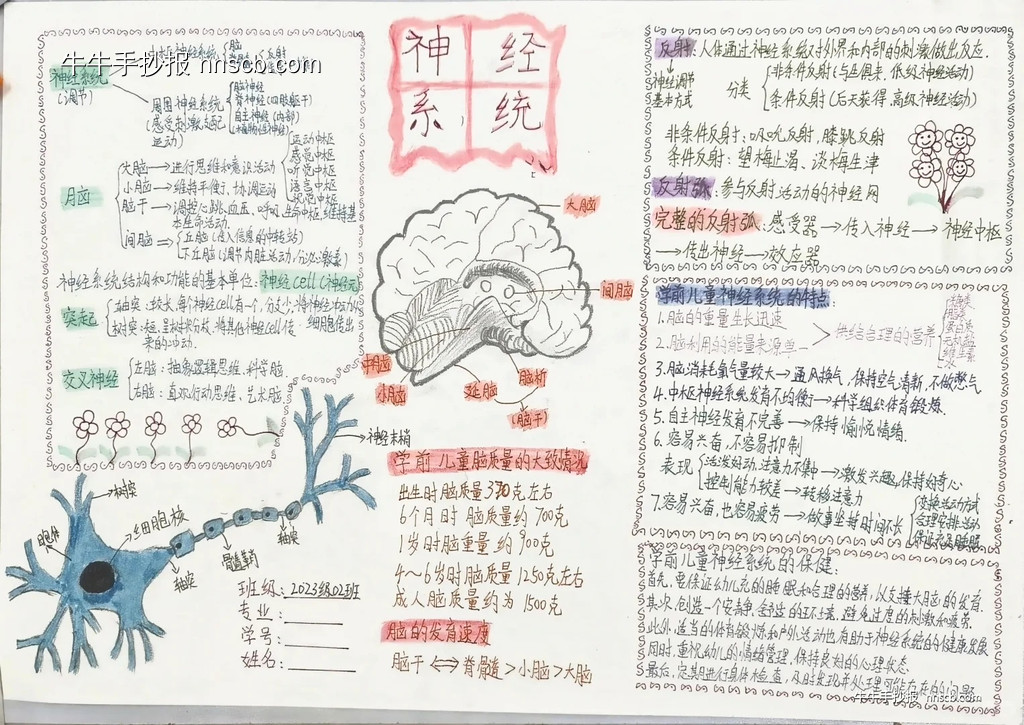 牛牛手抄报 nnscb.com
神经系统
(调节)
脑
反射
周围神经系统
(感受刺激支配
运动)
脑神经
脊神经(四肢躯干)
自主神经(内部)
(植物性神经)
月脑
大脑→进行思维和意识活动
小脑→维持平衡,协调运动
脑干→调控心跳、血压、呼吸 生命中枢,维持基
本生命活动.
间脑→
丘脑(传入信息的中转站)
下丘脑(调节内脏活动/分泌激素)
运动中枢
感觉中枢
听觉中枢
语言中枢
视觉中枢
神经系统结构和功能的基本单位:神经cell(神经元)
突起
轴突:较长,每个神经cell有一个,分支少,将神经冲动从
细胞传出
树突:短,呈树状分枝,将其他神经cell传
来的冲动.
交叉神经
左脑:抽象逻辑思维、科学脑.
右脑:直观行动思维、艺术脑.
树突
胞体
细胞核
轴突
髓鞘
轴突
神经末梢
班级:2023级02班
专业:
学号:
姓名:
神经
系统
大脑
间脑
中脑
小脑
延脑
脑桥
(脑干)
学前儿童脑质量的大致情况
出生时脑质量370克左右
6个月时脑质量约700克
1岁时脑重量约900克
4~6岁时脑质量1250克左右
成人脑质量约为1500克
脑的发育速度
脑干⟺脊骨髓>小脑>大脑
反射:人体通过神经系统对外界和内部的刺激做出反应.
神经调节
基本方式
分类
非条件反射(与生俱来,低级神经活动)
条件反射(后天获得,高级神经活动)
非条件反射:吸吮反射,膝跳反射
条件反射:望梅止渴、谈梅生津
反射弧:参与反射活动的神经网
完整的反射弧:感受器→传入神经→神经中枢
→传出神经→效应器
学前儿童神经系统的特点:
1.脑的重量生长迅速
2.脑利用的能量来源单一
供给合理的营养
糖类
脂类
蛋白类
无机盐
维生素
3.脑消耗氧气量较大→通风换气,保持空气清新,不做憋气
4.中枢神经系统发育不均衡→科学组织体育锻炼.
5.自主神经发育不完善→保持愉悦情绪.
6.容易兴奋,不容易抑制
表现
活泼好动,注意力不集中→激发兴趣,保持好奇心
控制能力较差→转移注意力
7.容易兴奋,也容易疲劳→做事坚持时间不长
变换活动方式
合理安排活动
保证充足睡眠
学前儿童神经系统的保健:
首先,要保证幼儿充的睡眠和合理的营养,以支撑大脑的发育.
其次,创造一个安静,舒适的环境,避免过度的刺激和疲劳.
此外,适当的体育锻炼和户外活动也有助于神经系统的健康发展
同时,重视幼儿的情绪管理,保持良好的心理状态
最后,定期进行身体检查,及时发现并处理可能存在的问题
牛牛手抄报 nnscb.com